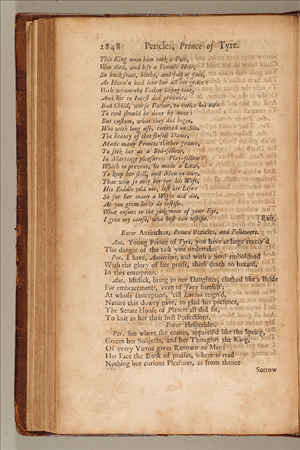 2848 Pericles, Prince of Tyre.
This King unto him took a Peer,
Who died, and left a Female Heir,
So bucksome, blithe, and full of face,
As Heav'n had lent her all his grace:
With whom the Father liking took,
And her to Incest did provoke:
Bad Child, worse Father, to entice his own
To evil should be done by none:
But custom, what they did begin,
Was with long use, counted no Sin.
The beauty of this sinful Dame,
Made many Princes thither frame,
To seek her as a Bed-fellow,
In Marriage pleasures, Play-fellow:
Which to prevent, he made a Law,
To keep her still, and Men in awe,
That who so ask'd her for his Wife,
His Riddle told not, lost his Life:
So for her many a Wight did die,
As yon grim looks do testifie.
What ensues to the judgment of your Eye,
I give my cause, who best can testifie. [Exit.
Enter Antiochus, Prince Pericles, and Followers.
Ant. Young Prince of Tyre, you have at large receiv'd
The danger of the task you undertake.
Per. I have, Antiochus, and with a Soul emboldned
With the glory of her praise, think death no hazard,
In this enterprise.
Ant. Musick, bring in our Daughter, cloathed like a Bride
For embracements, even of Jove himself;
At whose conception, 'till Lucina reign'd,
Nature this dowry gave, to glad her presence,
The Senate House of Planets all did sit,
To knit in her their best Perfections.
Enter Hesperides.
Per. See where she comes, apparel'd like the Spring,
Graces her Subjects, and her Thoughts the King,
Of every Virtue gives Renown to Men:
Her Face the Book of praises, where is read
Nothing but curious Pleasures, as from thence
Sorrow